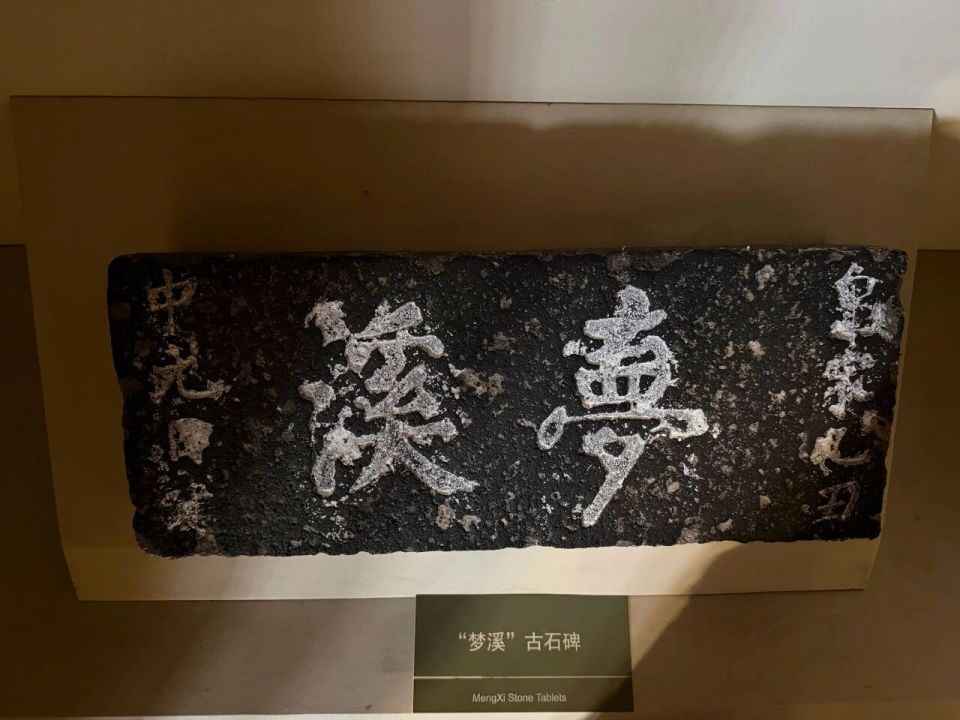 皇宋己丑
夢
溪
中元日
“梦溪”古石碑
MengXi Stone Tablets